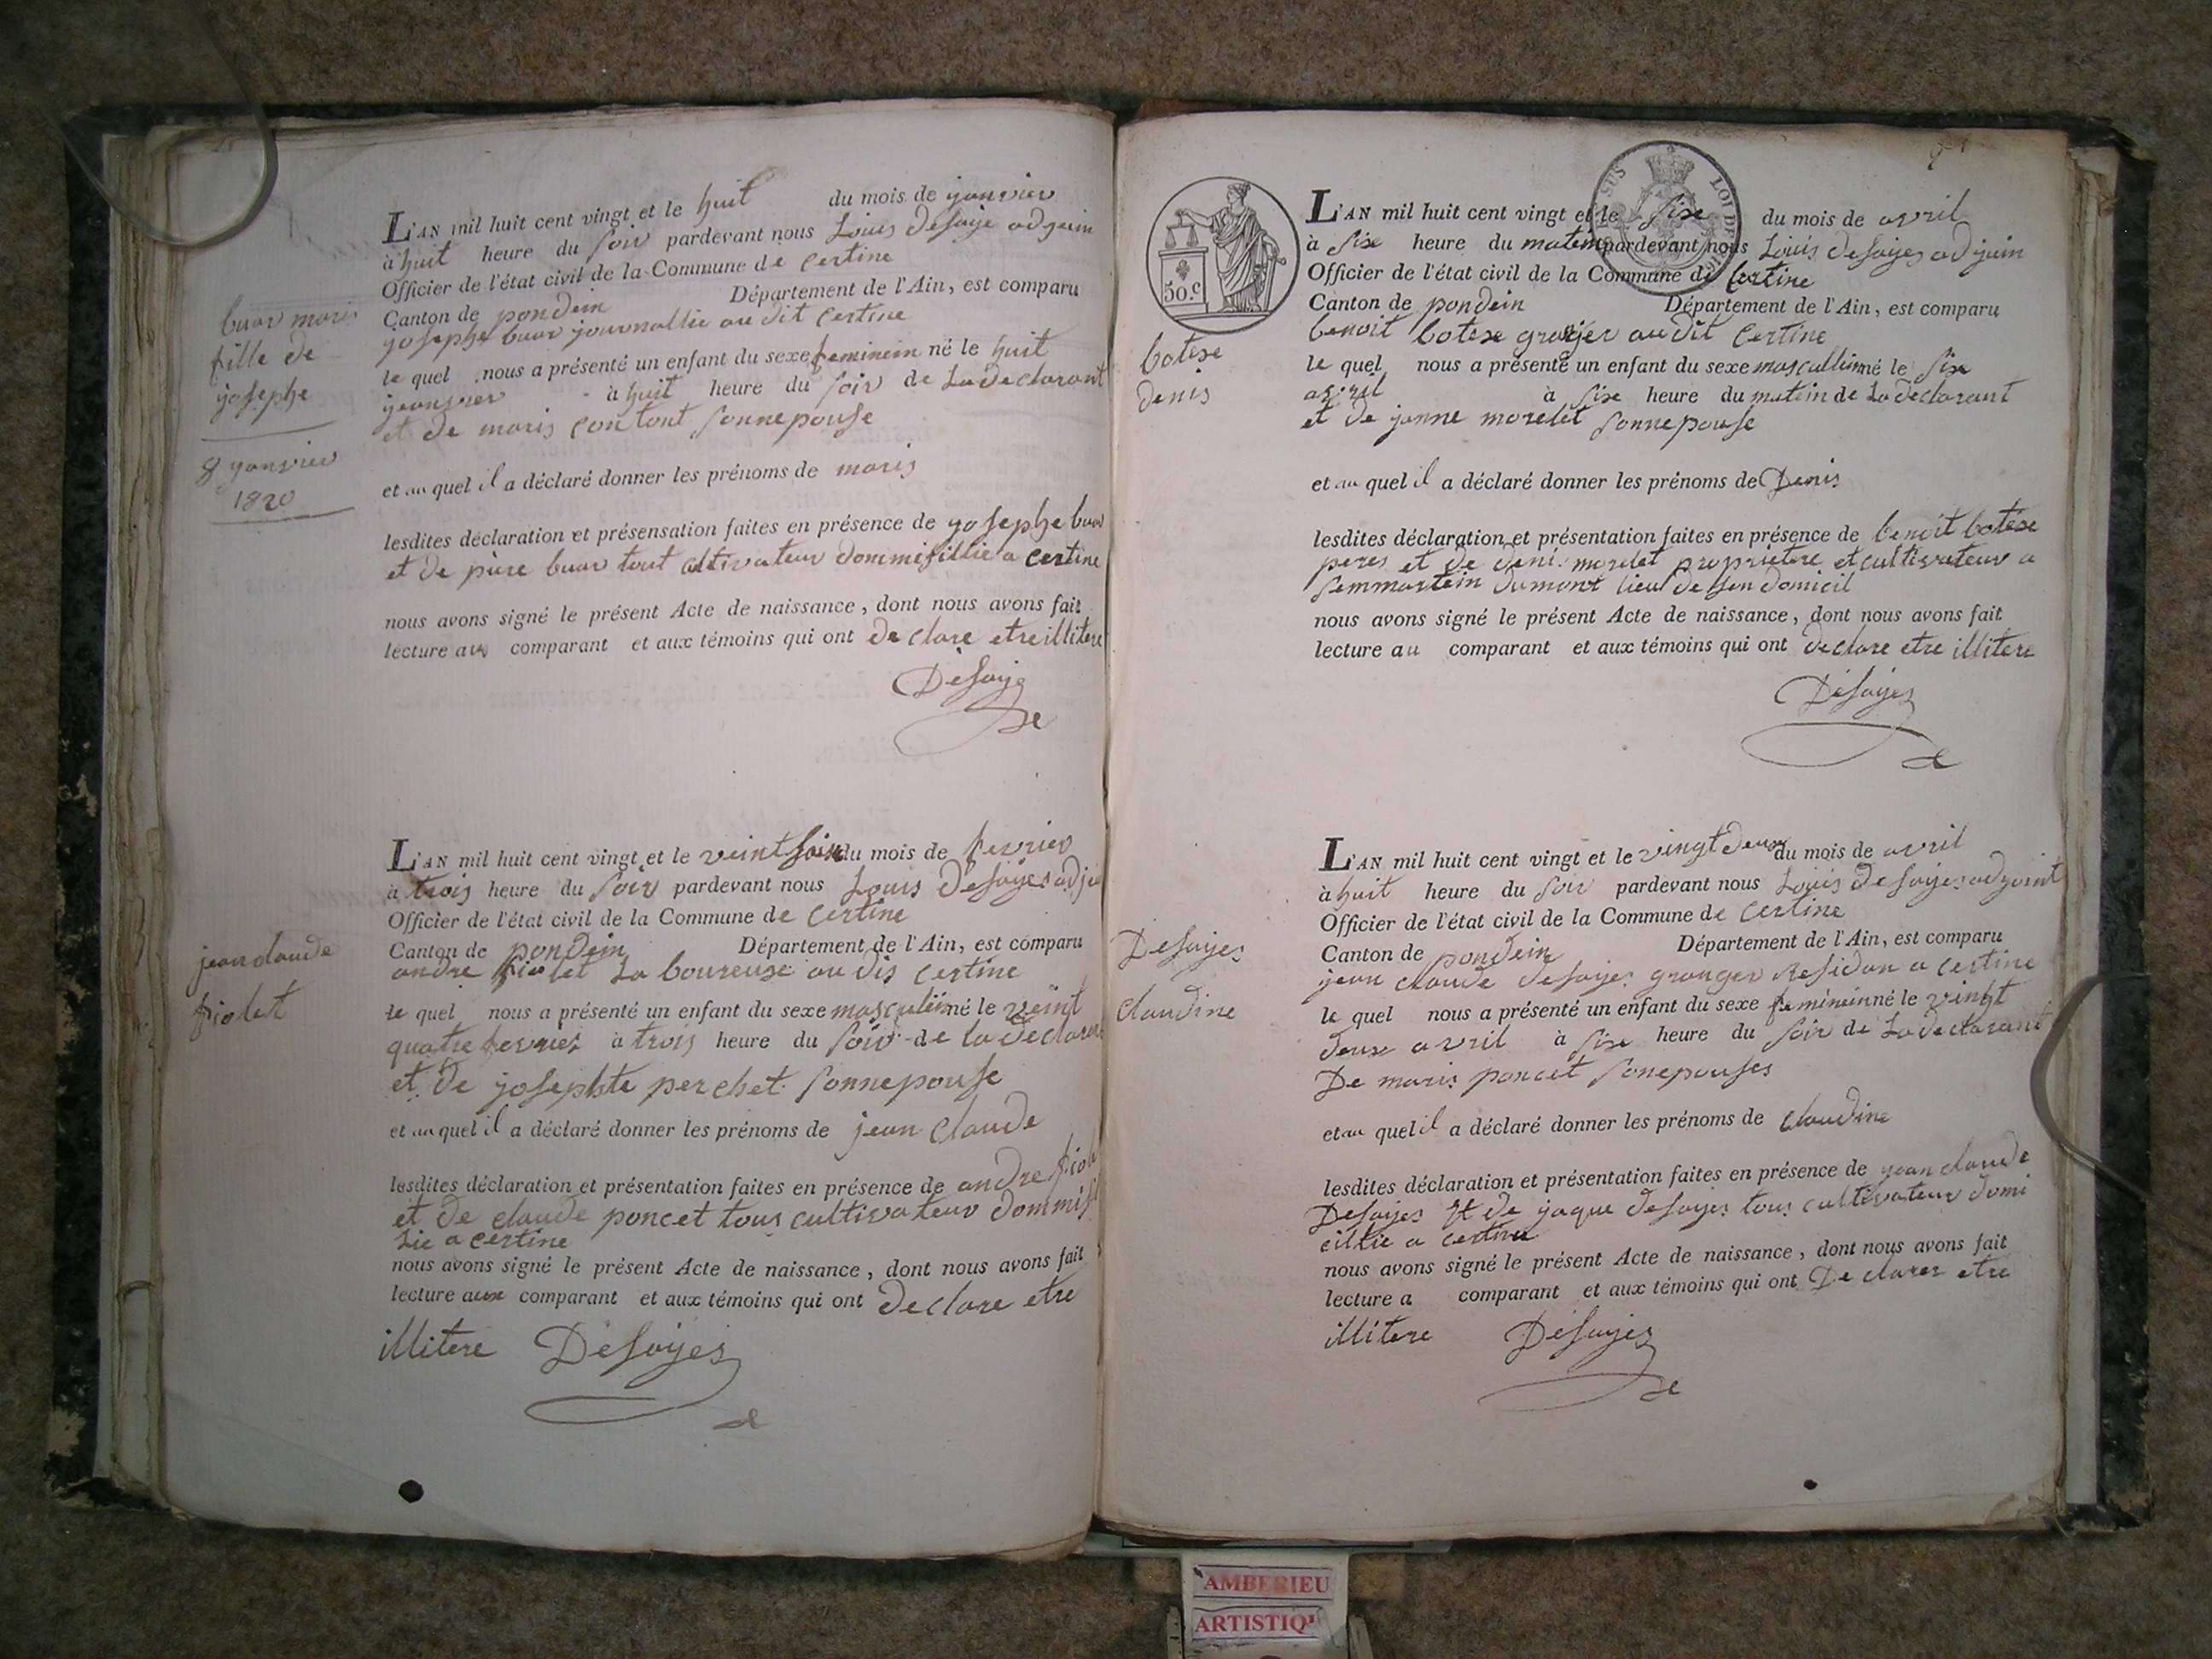 buar maris
fille de
josephe
8 janvier
1820
L'AN mil huit cent vingt et le huit du mois de janvier
à huit heure du soir pardevant nous Louis Desaye adjuin
Officier de l'état civil de la Commune de certine
Canton de pondein Département de l'Ain, est comparu
josephe buar journallié au dit certine
le quel nous a présenté un enfant du sexe feminein né le huit
à huit heure du soir de La declarant
et de maris contont sonnepouse
et au quel il a déclaré donner les prénoms de maris
lesdites déclaration et présensation faites en présence de josephe buar
et de piere buar tout cultivateur dommisillie a certine
nous avons signé le présent Acte de naissance, dont nous avons fait
lecture aux comparant et aux témoins qui ont declare etre illitere
Desaye
jean claude
fiolet
L'AN mil huit cent vingt et le veint du mois de fevrier
à trois heure du soir pardevant nous Louis Desayes
Officier de l'état civil de la Commune de certine
Canton de pondein Département de l'Ain, est comparu
andre fiolet La boureuse au dis certine
le quel nous a présenté un enfant du sexe masculein né le veint
quatre fevrier à trois heure du soir de la declarant
et de josephte perchet sonnepouse
et au quel il a déclaré donner les prénoms de jean claude
lesdites déclaration et présentation faites en présence de andre fiol
et de claude poncet tous cultivateur dommisi
lie a certine
nous avons signé le présent Acte de naissance, dont nous avons fait
lecture aux comparant et aux témoins qui ont declare etre
illitere Desayes
50.c
SUS LOI DE
botexe
denis
L'AN mil huit cent vingt et le sixe du mois de avril
à sixe heure du matein pardevant nous Louis desayes adjuin
Officier de l'état civil de la Commune de certine
Canton de pondein Département de l'Ain, est comparu
benoit botexe granjer au dit certine
le quel nous a présenté un enfant du sexe mascullin né le sixe
avril à sixe heure du matein de La declarant
et de janne morelet sonnepouse
et au quel il a déclaré donner les prénoms de Denis
lesdites déclaration et présentation faites en présence de benoit botexe
peres et de deni morelet proprietere et cultivateur a
semmartein dumont lieu de son domicil
nous avons signé le présent Acte de naissance, dont nous avons fait
lecture au comparant et aux témoins qui ont declare etre illitere
Desayes
Desayes
claudine
L'AN mil huit cent vingt et le vingt deux du mois de avril
à huit heure du soir pardevant nous Louis desayes adjoint
Officier de l'état civil de la Commune de certine
Canton de pondein Département de l'Ain, est comparu
jean claude desayes granger Residan a certine
le quel nous a présenté un enfant du sexe feminein né le vingt
deuse avril à sixe heure du soir de La declarant
De maris poncet sonepouses
et au quel il a déclaré donner les prénoms de claudine
lesdites déclaration et présentation faites en présence de jean claude
Desayes et de jaque desayes tous cultivateur domi
cillie a certine
nous avons signé le présent Acte de naissance, dont nous avons fait
lecture a comparant et aux témoins qui ont Declarer etre
illitere Desayes
AMBERIEU
ARTISTIQ